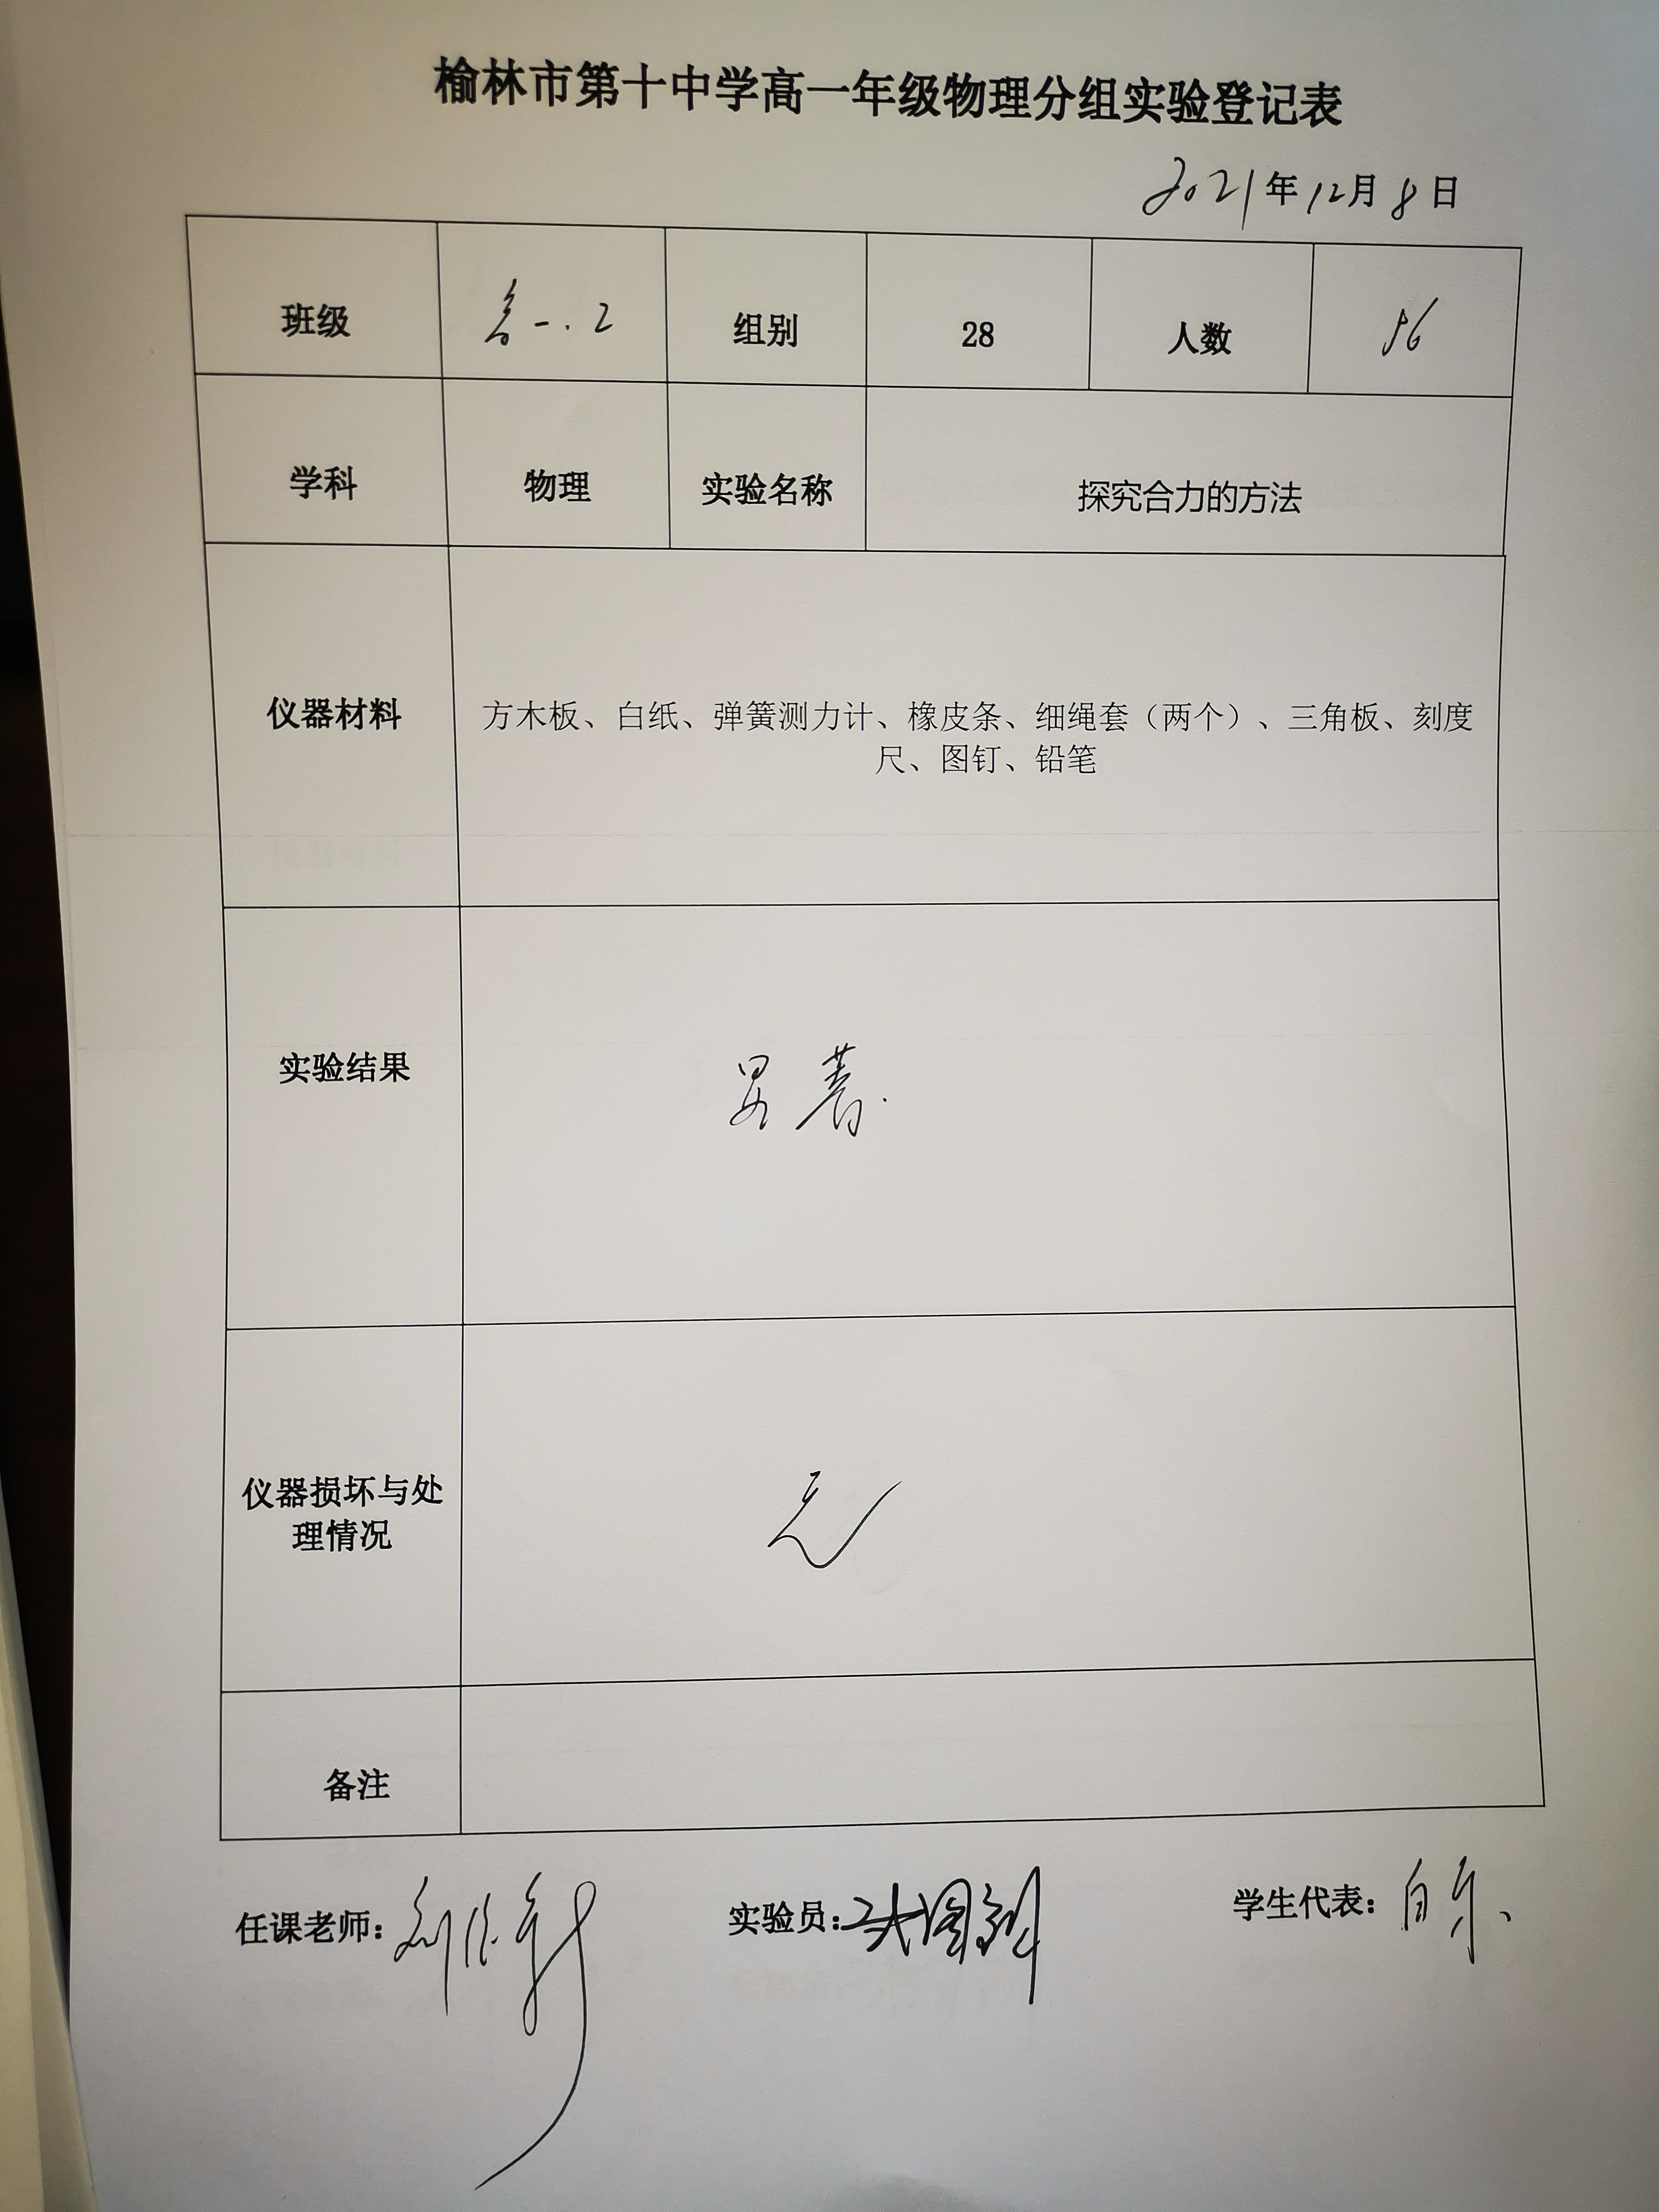 榆林市第十中学高一年级物理分组实验登记表
2021年12月8日
班级 高一.2 组别 28 人数 56
学科 物理 实验名称 探究合力的方法
仪器材料 方木板、白纸、弹簧测力计、橡皮条、细绳套（两个）、三角板、刻度
尺、图钉、铅笔
实验结果
仪器损坏与处
理情况
无
备注
任课老师： 实验员： 学生代表：